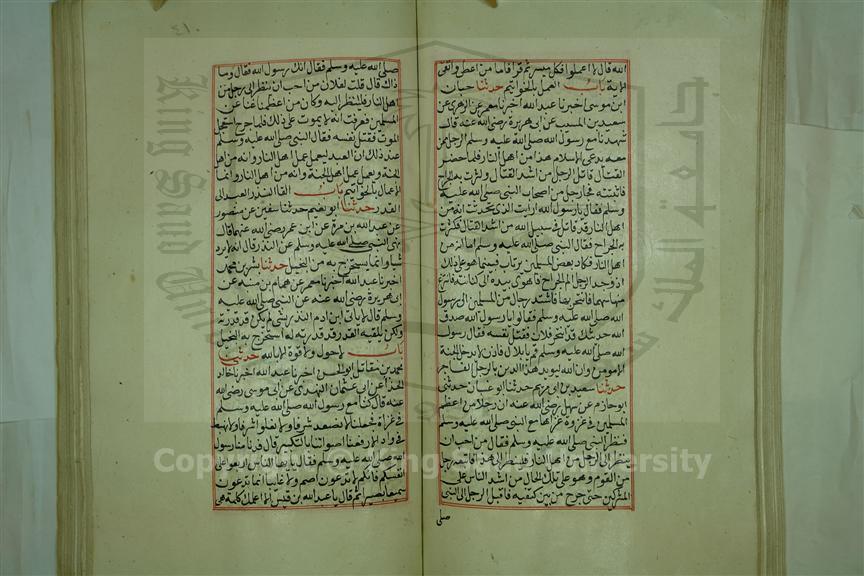 الله قال لا اعملوا فكل ميسر ثم قرا فاما من اعطى واتقى
الاية باب العمل بالخواتيم حدثنا حبان
ابن موسى اخبرنا عبد الله اخبرنا معمر عن الزهري عن
سعيد بن المسيب عن ابى هريرة رضي الله عنه قال
شهدنا مع رسول الله صلى الله عليه وسلم الرجل ممن
معه يدعى الاسلام هذا من اهل النار فلما حضر
القتال قاتل الرجل من اشد القتال وكثرت به الجراح
فاثبتته فجا رجل من اصحاب النبي صلى الله عليه
وسلم فقال يا رسول الله ارايت الذى تحدثت انه من
اهل النار قد قاتل في سبيل الله من اشد القتال فكثرت
به الجراح فقال النبي صلى الله عليه وسلم اما انه من
اهل النار فكاد بعض المسلمين يرتاب فبينما هو على ذلك
اذ وجد الرجل الم الجراح فاهوى بيده الى كنانته فانتزع
منها سهما فانتحر بها فاشتد رجال من المسلمين الى رسول
الله صلى الله عليه وسلم فقالوا يا رسول الله صدق
الله حديثك قد انتحر فلان فقتل نفسه فقال رسول
الله صلى الله عليه وسلم قم يا بلال فاذن لا يدخل الجنة
الا مومن وان الله ليويد هذا الدين بالرجل الفاجر
حدثنا سعيد بن ابى مريم حدثنا ابو غسان حدثنى
ابو حازم عن سهل رضي الله عنه ان رجلا من اعظم
المسلمين في غزوة غزاها مع النبي صلى الله عليه وسلم
فنظر النبي صلى الله عليه وسلم فقال من احب ان
ينظر الى الرجل من اهل النار فلينظر الى هذا فاتبعه رجل
من القوم وهو على تلك الحال من اشد الناس على
المشركين حتى جرح من بين كتفيه فاقبل الرجل الى النبي
صلى
٤١٠
صلى الله عليه وسلم فقال انك رسول الله فقال وما
ذاك قال قلت لفلان من احب ان ينظر الى رجل من
اهل النار فلينظر اليه وكان من اعظمنا غنا عن
المسلمين فعرفت انه لا يموت على ذلك فلما جرح استعجل
الموت فقتل نفسه فقال النبي صلى الله عليه وسلم
عند ذلك ان العبد ليعمل عمل اهل النار وانه من اهل
الجنة ويعمل عمل اهل الجنة وانه من اهل النار وانما
الاعمال بالخواتيم باب القا النذر العبد الى
القدر حدثنا ابو نعيم حدثنا سفين عن منصور
عن عبد الله بن مرة عن ابن عمر رضي الله عنهما قال
نهى النبي صلى الله عليه وسلم عن النذر قال انه لا يرد
شيا وانما يستخرج به من البخيل حدثنا بشر بن محمد
اخبرنا عبد الله اخبرنا معمر عن همام بن منبه عن
ابى هريرة رضي الله عنه عن النبي صلى الله عليه
وسلم قال لا يات ابن ادم النذر بشى لم يكن قد قدرته
ولكن يلقيه القدر وقد قدرته له استخرج به من البخيل
باب لا حول ولا قوة الا بالله حدثنى
محمد بن مقاتل ابو الحسن اخبرنا عبد الله اخبرنا خالد
الحذا عن ابى عثمان النهدى عن ابى موسى رضي الله
عنه قال كنا مع رسول الله صلى الله عليه وسلم
في غزاة فجعلنا لا نصعد شرفا ولا نعلوا شرفا ولا نهبط
في واد الا رفعنا اصواتنا بالتكبير قال فدنا منا رسول
الله صلى الله عليه وسلم فقال يا ايها الناس اربعوا على
انفسكم فانكم لا تدعون اصم ولا غايبا انما تدعون
سميعا بصيرا ثم قال يا عبد الله بن قيس الا اعلمك كلمة هي
Copyright © King Saud University
King Saud University
جامعة الملك